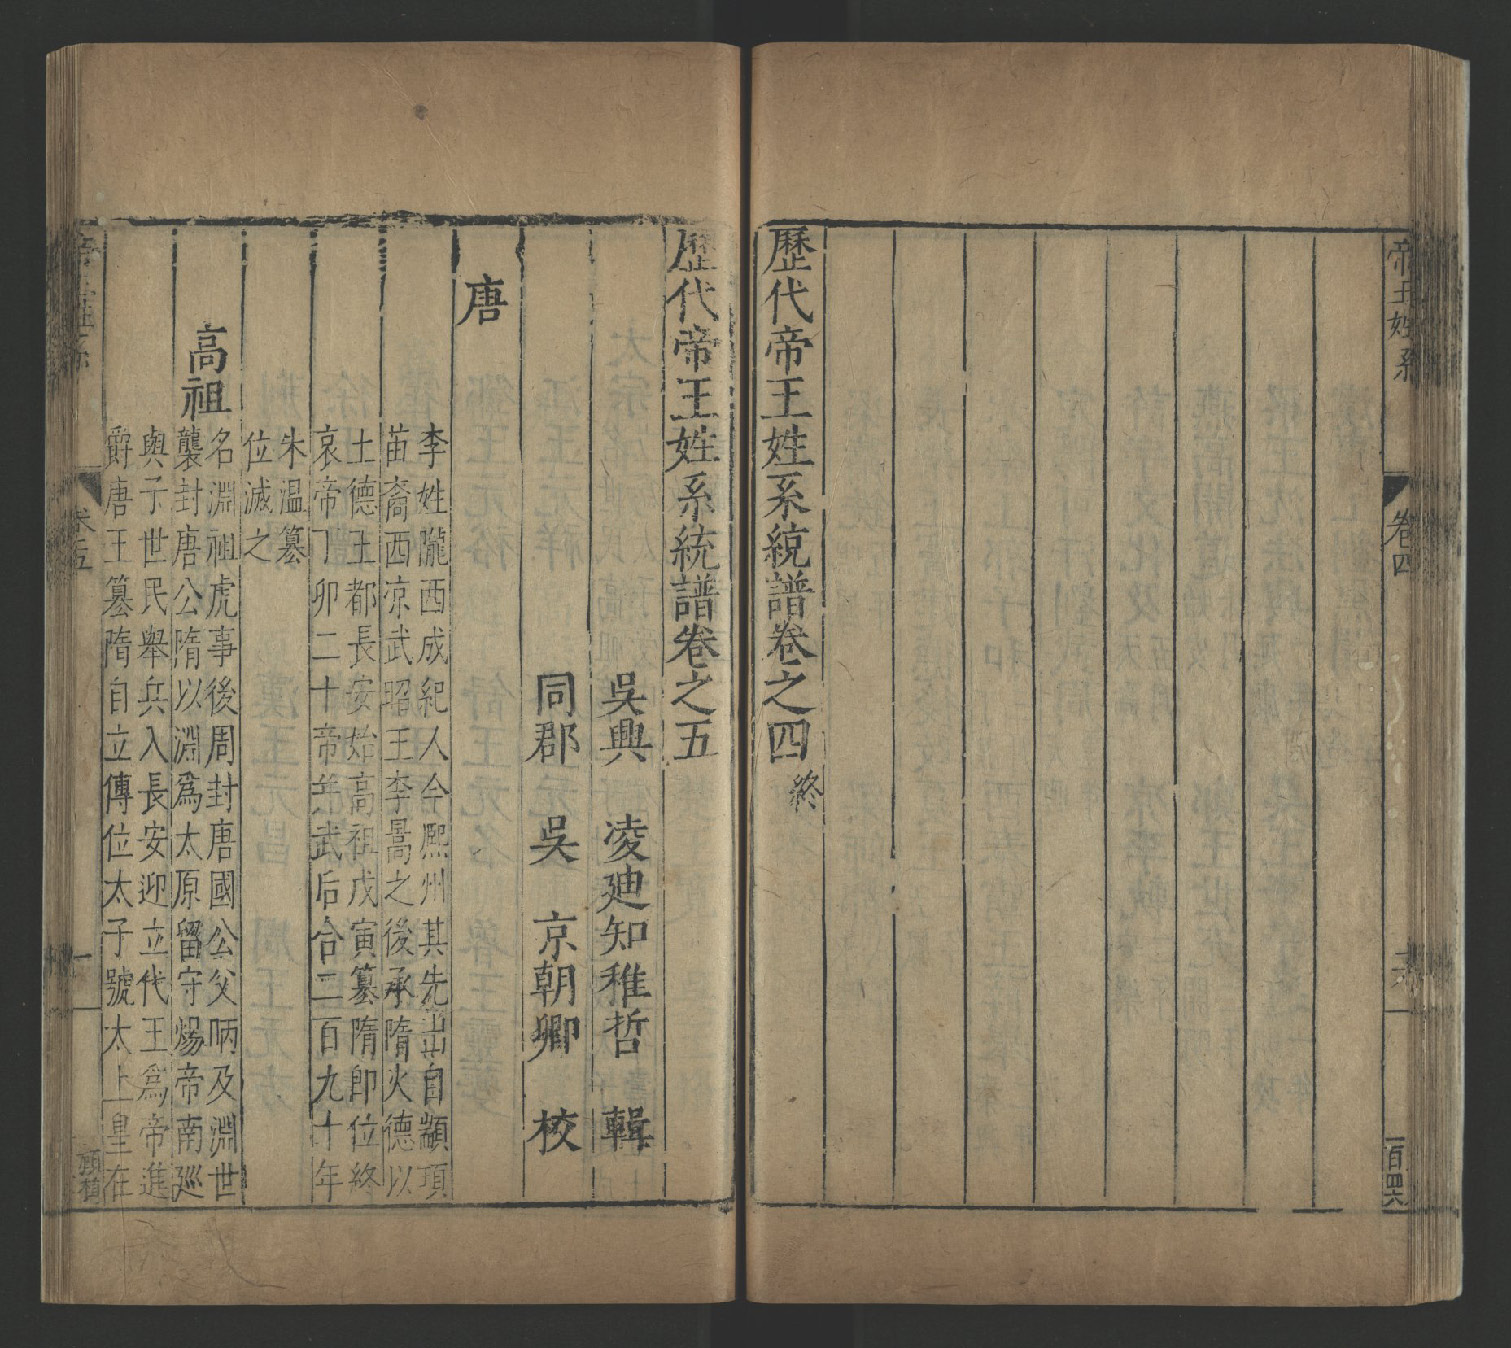 帝王姓系
卷四
一百四六
歷代帝王姓系統譜卷之四終
歷代帝王姓系統譜卷之五
吳興 凌迪知稚哲 輯
同郡 吳 京朝卿 校
唐
李姓隴西成紀人今熙州其先出自顓頊
苗裔西涼武昭王李暠之後承隋火德以
土德王都長安始高祖戊寅篡隋卽位終
哀帝丁卯二十帝并武后合二百九十年
朱溫篡
位滅之
高祖
名淵祖虎事後周封唐國公父昞及淵世
襲封唐公隋以淵爲太原留守煬帝南巡
與子世民舉兵入長安迎立代王爲帝進
爵唐王篡隋自立傳位太子號太上皇在
卷五
一